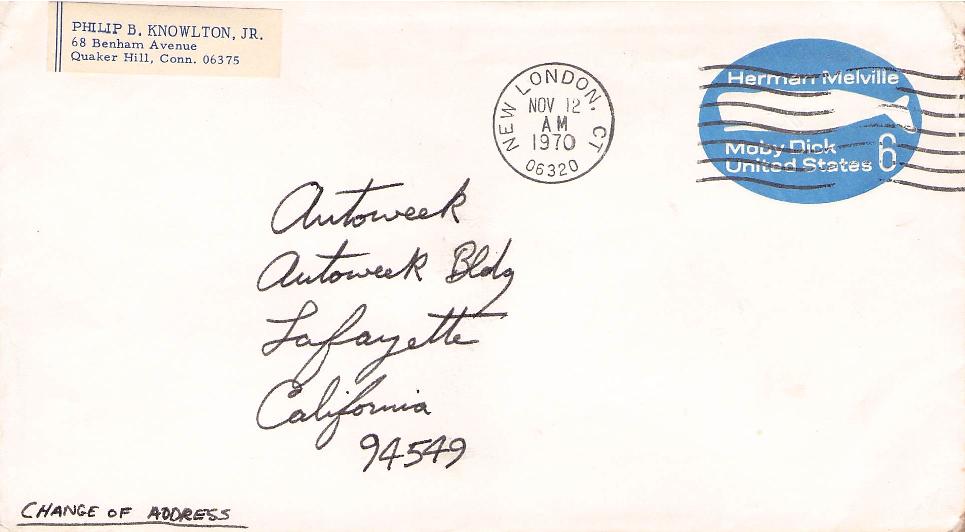 PHILIP B. KNOWLTON, JR.
68 Benham Avenue
Quaker Hill, Conn. 06375
NEW LONDON, CT
NOV 12
AM
1970
06320
Herman Melville
Moby Dick
United States 6
Autoweek
Autoweek Bldg
Lafayette
California
94549
CHANGE OF ADDRESS